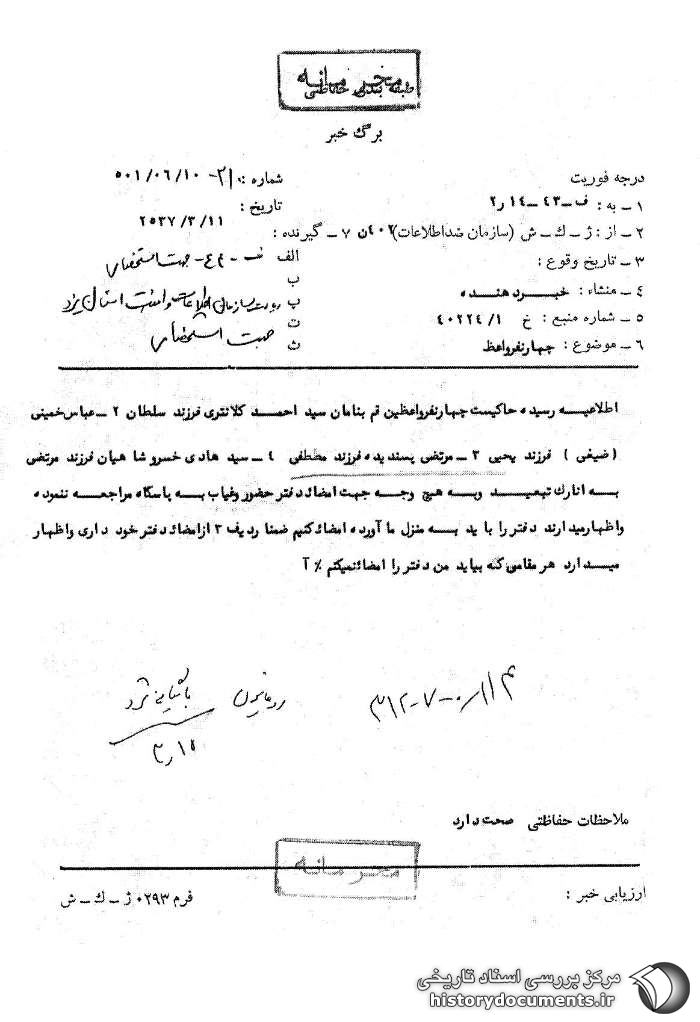 محرمانه
طبقه بندی حفاظتی
برگ خبر
درجه فوریت
شماره : ۲۱۰-۵۰۱/۰۶/۱۰
۱ ـ به : ف ـ ۴۳ ـ ۱۴ ر۲
تاریخ : ۲۵۳۷/۳/۱۱
۲ ـ از : ژ ـ ك ـ ش (سازمان ضداطلاعات) ۴۰۲ن
۷ ـ گیرنده :
الف ـ جهت استحضار
۳ ـ تاریخ وقوع :
ب
۴ ـ منشاء : خبردهنده
پ ریاست سازمان اطلاعات و امنیت استان یزد
۵ ـ شماره منبع : خ ۴۰۲۲۴/۱
ت جهت استحضار
۶ ـ موضوع : چهارنفرواعظ
ث
اطلاعیه رسیده حاکیست چهارنفرواعظین قم بنامان سید احمد کلانتری فرزند سلطان ۲ ـ عباس خمینی
(ضیغی) فرزند یحیی ۳ ـ مرتضی پسندیده فرزند مصطفی ۴ ـ سید هادی خسروشاهیان فرزند مرتضی
به انارك تبعید وبه هیچ وجه جهت امضائ دفتر حضور وغیاب به پاسگاه مراجعه ننموده
واظهارمیدارند دفتر را باید به منزل ما آورده امضائ کنیم ضمنا ردیف ۳ ازامضائ دفتر خود داری واظهار
میدارد هر مقامی که بیاید من دفتر را امضائ نمیکنم ٪ آ
۳۱۲-۷-۰/۱۱ م
بایگانی شود
۳ر۱۵
ملاحظات حفاظتی صحت دارد
محرمانه
ارزیابی خبر :
فرم ۰۲۹۳ ژ ـ ك ـ ش
مرکز بررسی اسناد تاریخی
historydocuments.ir